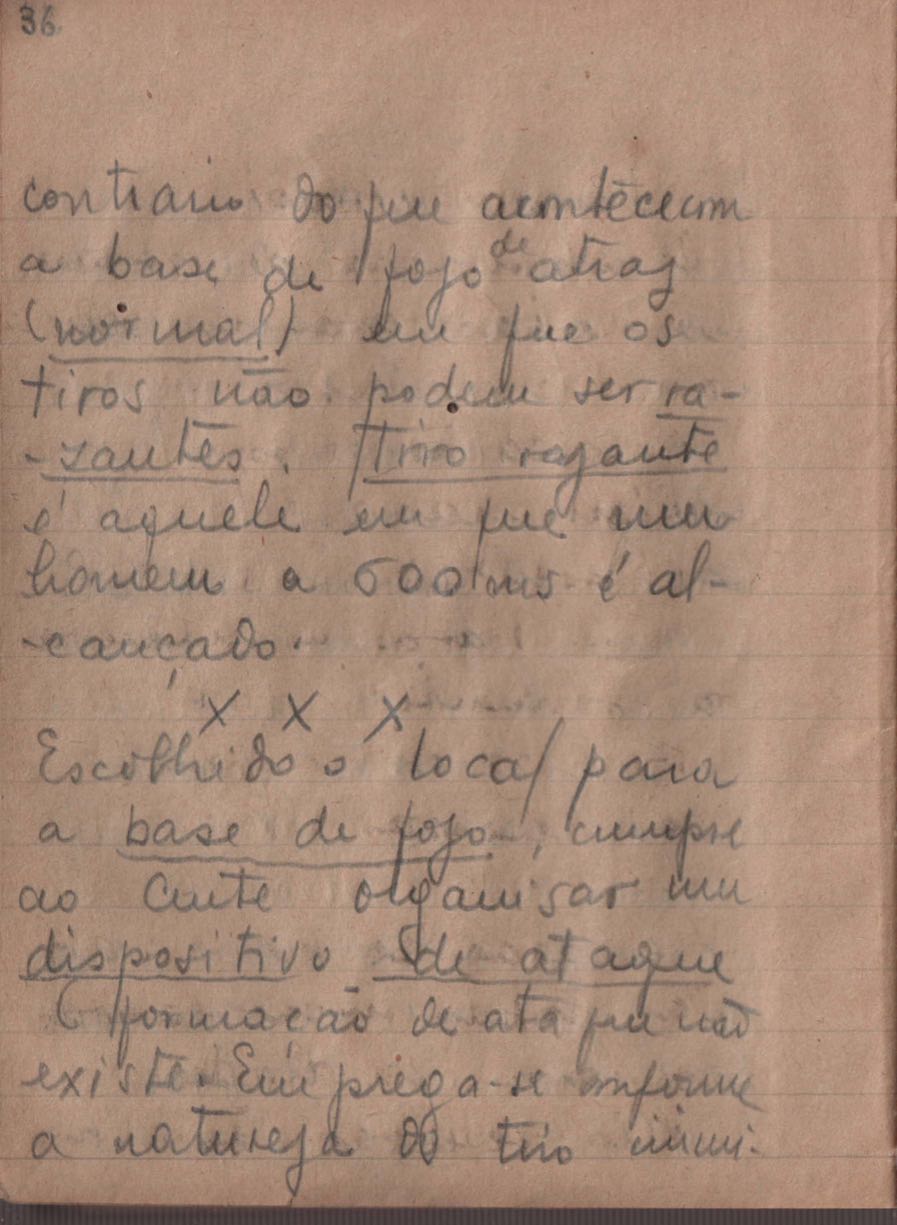 36
contrario do que acontece com
a base de fogo de atraz
(normal) em que os
tiros não podem ser ra-
-zantes. Tiro razante
é aquele em que um
homem a 600 ms é al-
-cançado.
X X X
Escolhido o local para
a base de fogo, cumpre
ao Cmte organisar um
dispositivo de ataque
(formação de ataque não
existe. Emprega-se conforme
a natureza do tiro inimi-